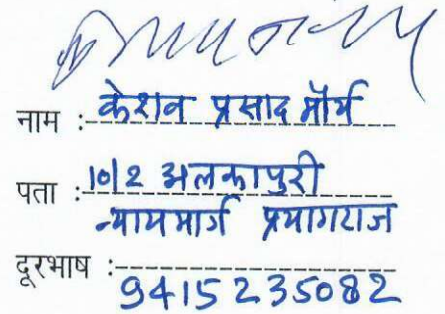 नाम : केशव प्रसाद मौर्य
पता : 10/2 अलकापुरी
न्यायमार्ग प्रयागराज
दूरभाष :
9415235082